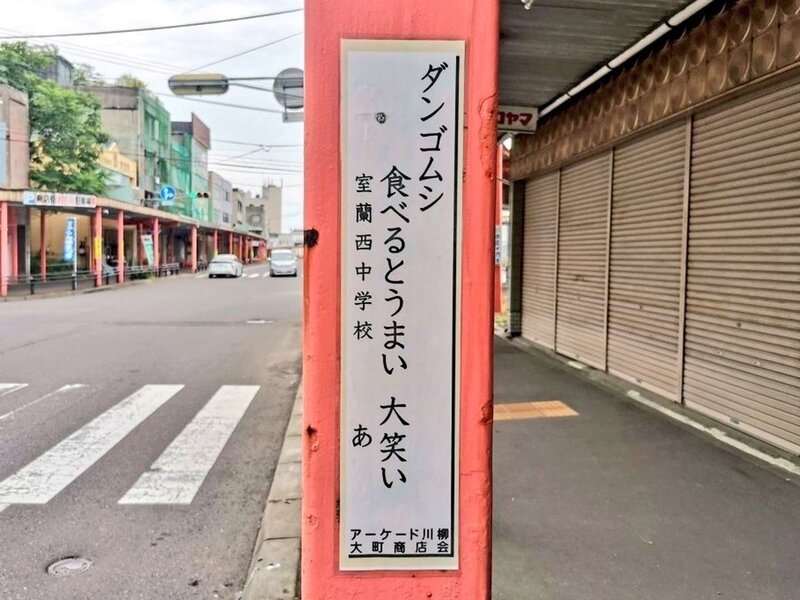 ダンゴムシ
食べるとうまい 大笑い
室蘭西中学校 あ
アーケード川柳
大町商店会
コヤマ